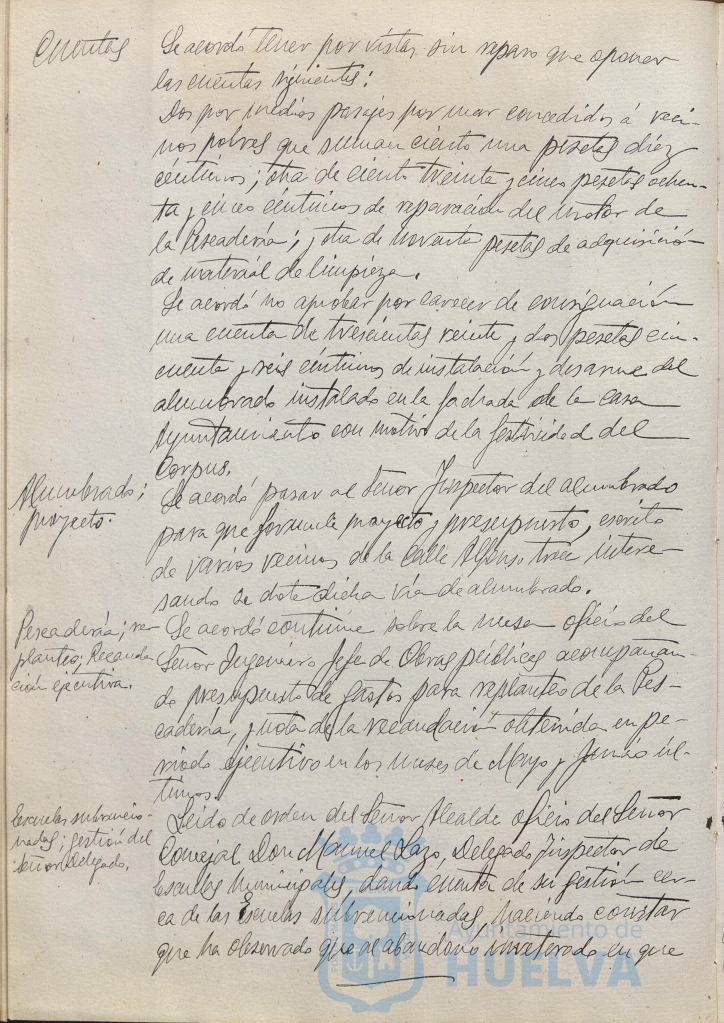 Cuentas
Se acordó tener por vistas sin reparo que oponer
las cuentas siguientes:
Dos por medios pasajes por mar concedidos á veci-
nos pobres que suman ciento una pesetas diez
céntimos; otra de ciento treinta y cinco pesetas ochen-
ta y cinco céntimos de reparación del motor de
la Pescadería; y otra de noventa pesetas de adquisición
de material de limpieza.
Se acordó no aprobar por carecer de consignación
una cuenta de trescientas veinte y dos pesetas cin-
cuenta y seis céntimos de instalación y desarme del
alumbrado instalado en la fachada de la casa
Ayuntamiento con motivo de la festividad del
Corpus.
Alumbrado;
proyecto.
Se acordó pasar al Señor Inspector del alumbrado
para que formule proyecto y presupuesto, escrito
de varios vecinos de la calle Alfonso trece intere-
sando se dote dicha vía de alumbrado.
Pescadería; re-
planteo; Recauda-
ción ejecutiva.
Se acordó continúe sobre la mesa oficio del
Señor Ingeniero Jefe de Obras públicas acompañan-
do presupuesto de gastos para replanteo de la Pes-
cadería, y nota de la recaudación obtenida en pe-
riodo ejecutivo en los meses de Mayo y Junio úl-
timos.
Escuelas subvencio-
nadas; gestión del
Señor Delegado.
Leido de orden del Señor Alcalde oficio del Señor
Concejal Don Manuel Lazo, Delegado Inspector de
Escuelas Municipales, dando cuenta de su gestión cer-
ca de las Escuelas subvencionadas, haciendo constar
que ha observado que al abandono inveterado en que
Ayuntamiento de
HUELVA